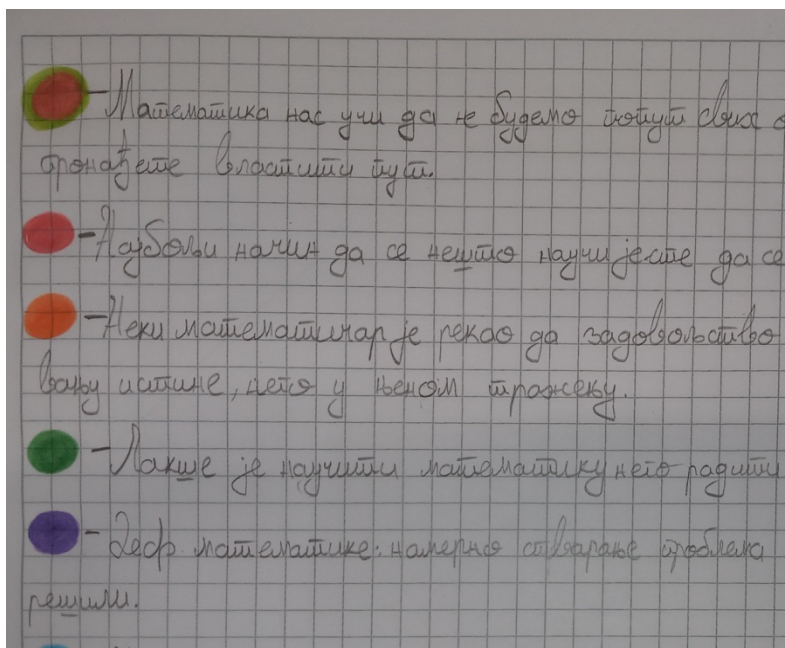 -Математика нас учи да не будемо попут свих
пронађете властити пут.
-Најбољи начин да се нешто научи јесте да се
-Неки математичар је рекао да задовољство
вању истине, него у њеном тражењу.
-Лакше је научити математику него радити
-Деф. математике: намерно стварање проблема
решили.